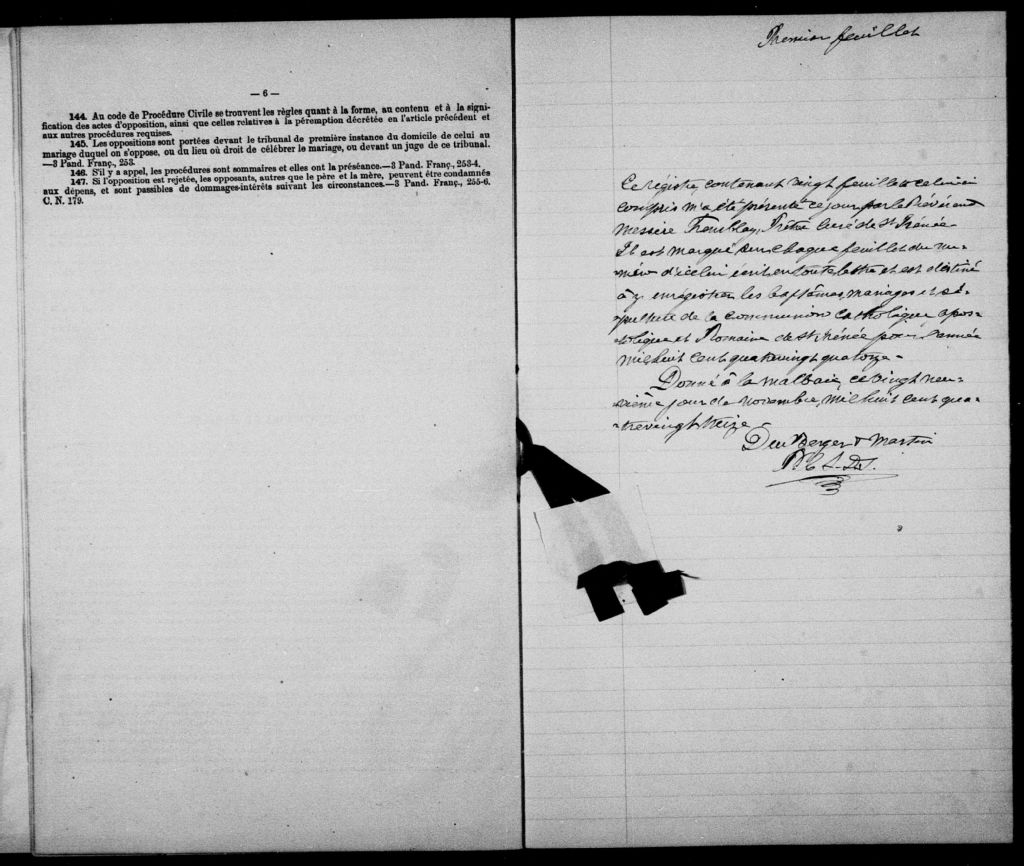 — 6 —
144. Au code de Procédure Civile se trouvent les règles quant à la forme, au contenu et à la signi-
fication des actes d'opposition, ainsi que celles relatives à la péremption décrétée en l'article précédent et
aux autres procédures requises.
145. Les oppositions sont portées devant le tribunal de première instance du domicile de celui au
mariage duquel on s'oppose, ou du lieu où droit de célébrer le mariage, ou devant un juge de ce tribunal.
—3 Pand. Franç., 253.
146. S'il y a appel, les procédures sont sommaires et elles ont la préséance.—3 Pand. Franç., 253-4.
147. Si l'opposition est rejetée, les opposants, autres que le père et la mère, peuvent être condamnés
aux dépens, et sont passibles de dommages-intérêts suivant les circonstances.—3 Pand. Franç., 255-6.
C. N. 179.
Premier feuillet
Ce régistre, contenant vingt feuillets celui-ci
compris m'a été présenté ce jour par le Révérend
Messire Tremblay, Prêtre Curé de St Irénée
Il est marqué sur chaque feuillet du nu-
méro d'icelui écrit en toute lettre et est destiné
à y enrégistrer les baptêmes, mariages et sé-
pulture de la communion catholique apos-
tolique et Romaine de St Irénée pour l'année
mil huit cent quatrevingt quatorze -
Donné à la Malbaie, ce vingt neu-
vième jour de novembre, mil huit cent qua-
-trevingt treize -
Du Berger & Martin
P C S. D. S.